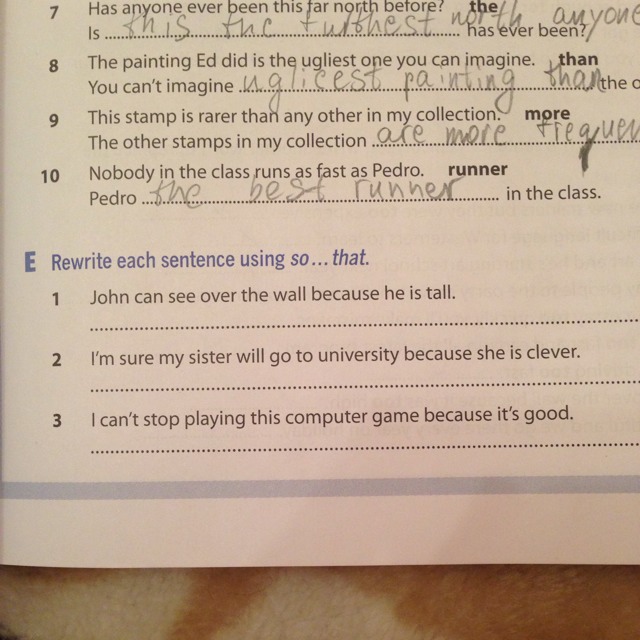 7 Has anyone ever been this far north before? the
Is this the furthest north anyone has ever been?
8 The painting Ed did is the ugliest one you can imagine. than
You can't imagine uglicest painting than the o
9 This stamp is rarer than any other in my collection. more
The other stamps in my collection are more frequen
10 Nobody in the class runs as fast as Pedro. runner
Pedro the best runner in the class.
E Rewrite each sentence using so...that.
1 John can see over the wall because he is tall.
2 I'm sure my sister will go to university because she is clever.
3 I can't stop playing this computer game because it's good.